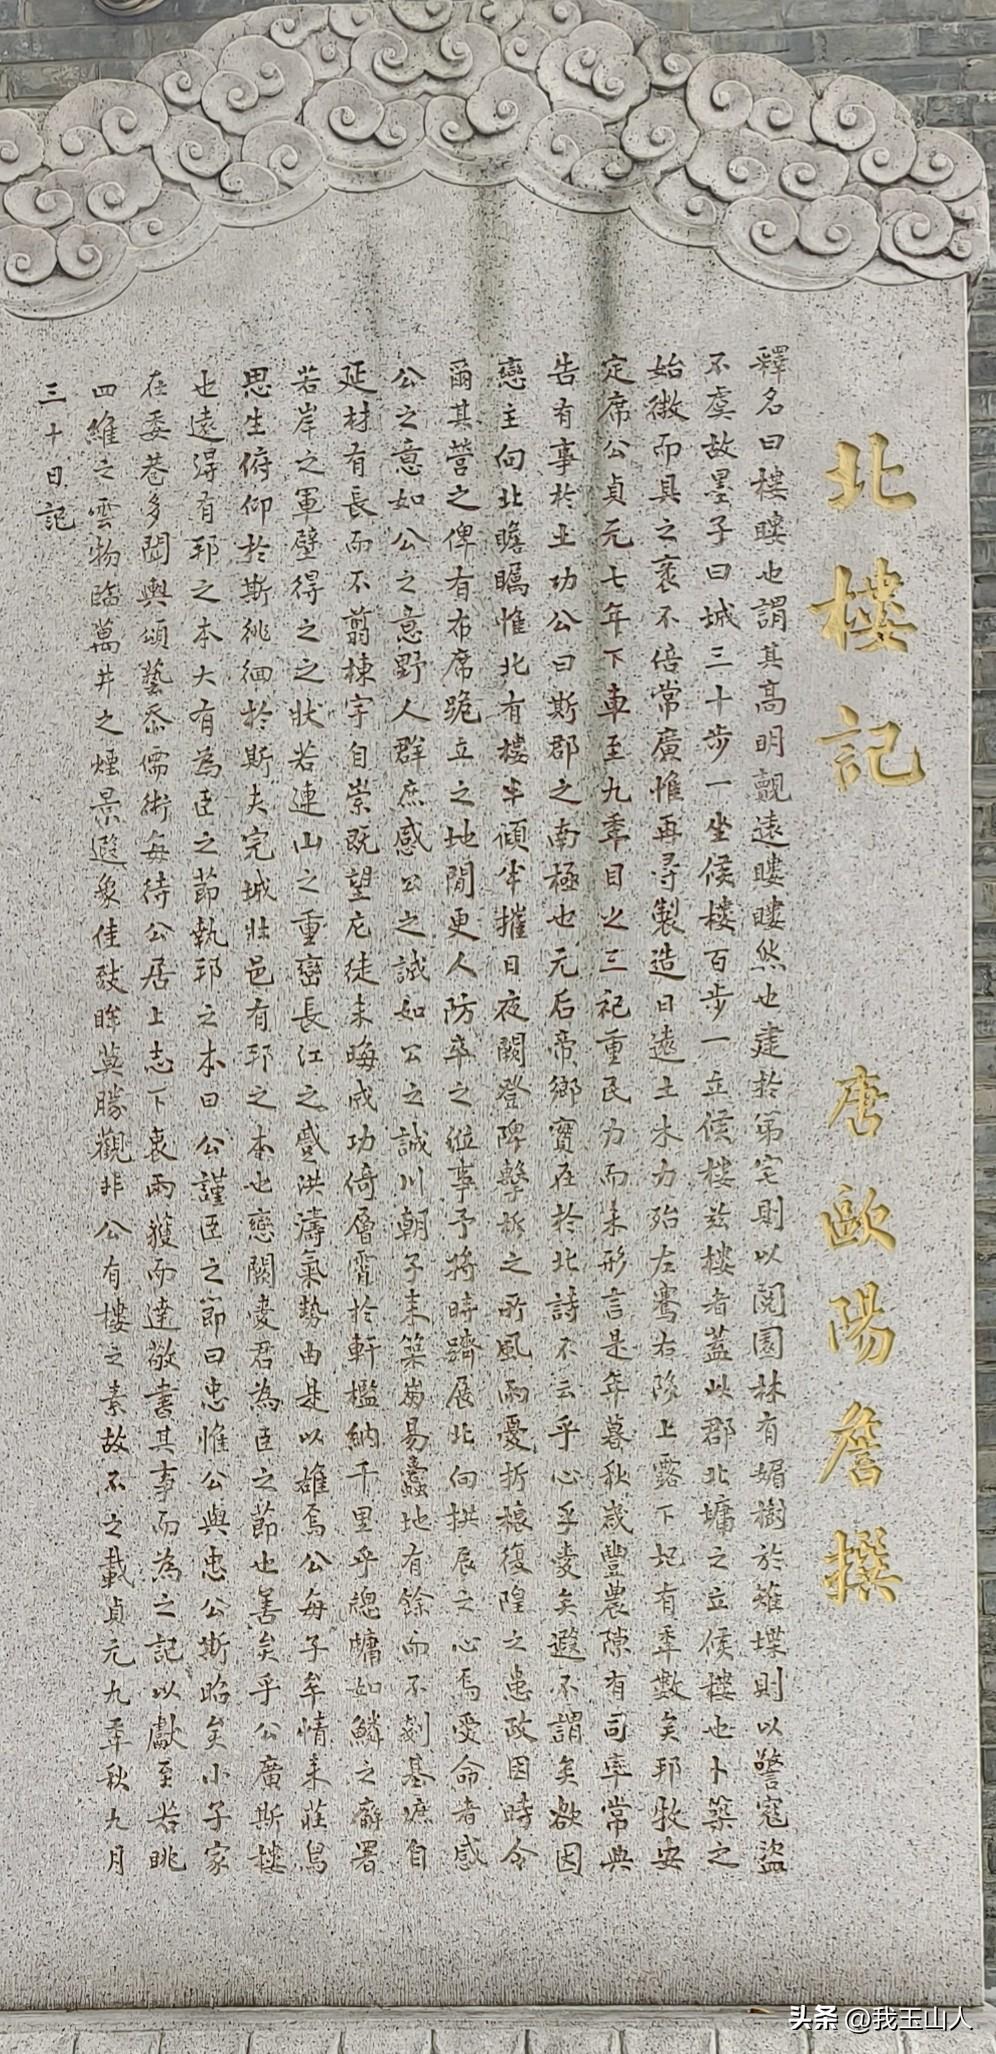 北樓記 唐歐陽詹撰
釋名曰樓瞜也謂其高明觀遠瞜瞜然也建於第宅則以閱園林有媚樹於雉堞則以警寇盜
不虞故墨子曰城三十步一坐候樓百步一立候樓玆樓者蓋此郡北墉之立候樓也卜築之
始微而具之袤不倍常廣惟再尋製造日遠土木力殆左騫右陊上露下圮有秊數矣邦牧安
定席公貞元七年下車至九秊目之三祀重民力而未形言是年暮秋歲豐農隙有司率常典
告有事於土功公曰斯郡之南極也元后帝鄉寶在於北詩不云乎心乎愛矣遐不謂矣欲因
戀主向北瞻矚惟北有樓半傾半摧日夜闕登陴擊柝之所風雨憂折榱復隍之患政因時令
爾其營之俾有布席跪立之地閒更人防卒之位事予將時躋展北向拱辰之心焉受命者感
公之意如公之意野人群庶感公之誠如公之誠川朝子來築崗易蠹地有餘而不剗基庶自
延材有長而不翦棟宇自崇既望庀徒未晦成功倚層霄於軒檻納千里乎緫牖如鱗之廨署
若岸之軍壁得之之狀若連山之重巒長江之感洪濤氣勢由是以雄焉公每子牟情來莊舄
思生俯仰於斯徘徊於斯夫完城壯邑有邦之本也戀闕愛君為臣之節也善矣乎公廣斯樓
也遠得有邦之本大有為臣之節執邦之本曰公謹臣之節曰忠惟公與忠公斯昭矣小子家
在委巷多聞輿頌藝忝儒術每待公居上志下衷兩獲而達敬書其事而為之記以獻至若眺
四維之雲物臨萬井之煙景遐象佳致眸莫勝觀非公有樓之素故不之載貞元九秊秋九月
三十日記
头条 @我玉山人